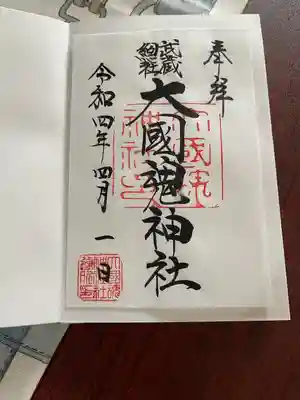 奉拝
武蔵
総社
大國魂神社
令和四年四月一日